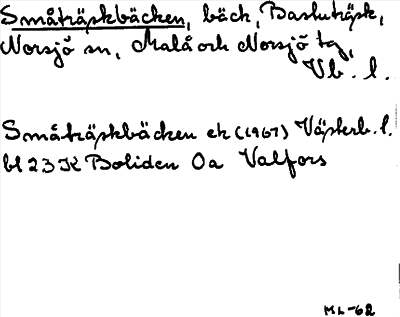 Småträskbäcken, bäck, Bastuträsk,
Norsjö sn, Malå och Norsjö tg,
Vb. l.
Småträskbäcken ek (1967) Västerb. l.
bl 23 K Boliden 0a Valfors
ML-62